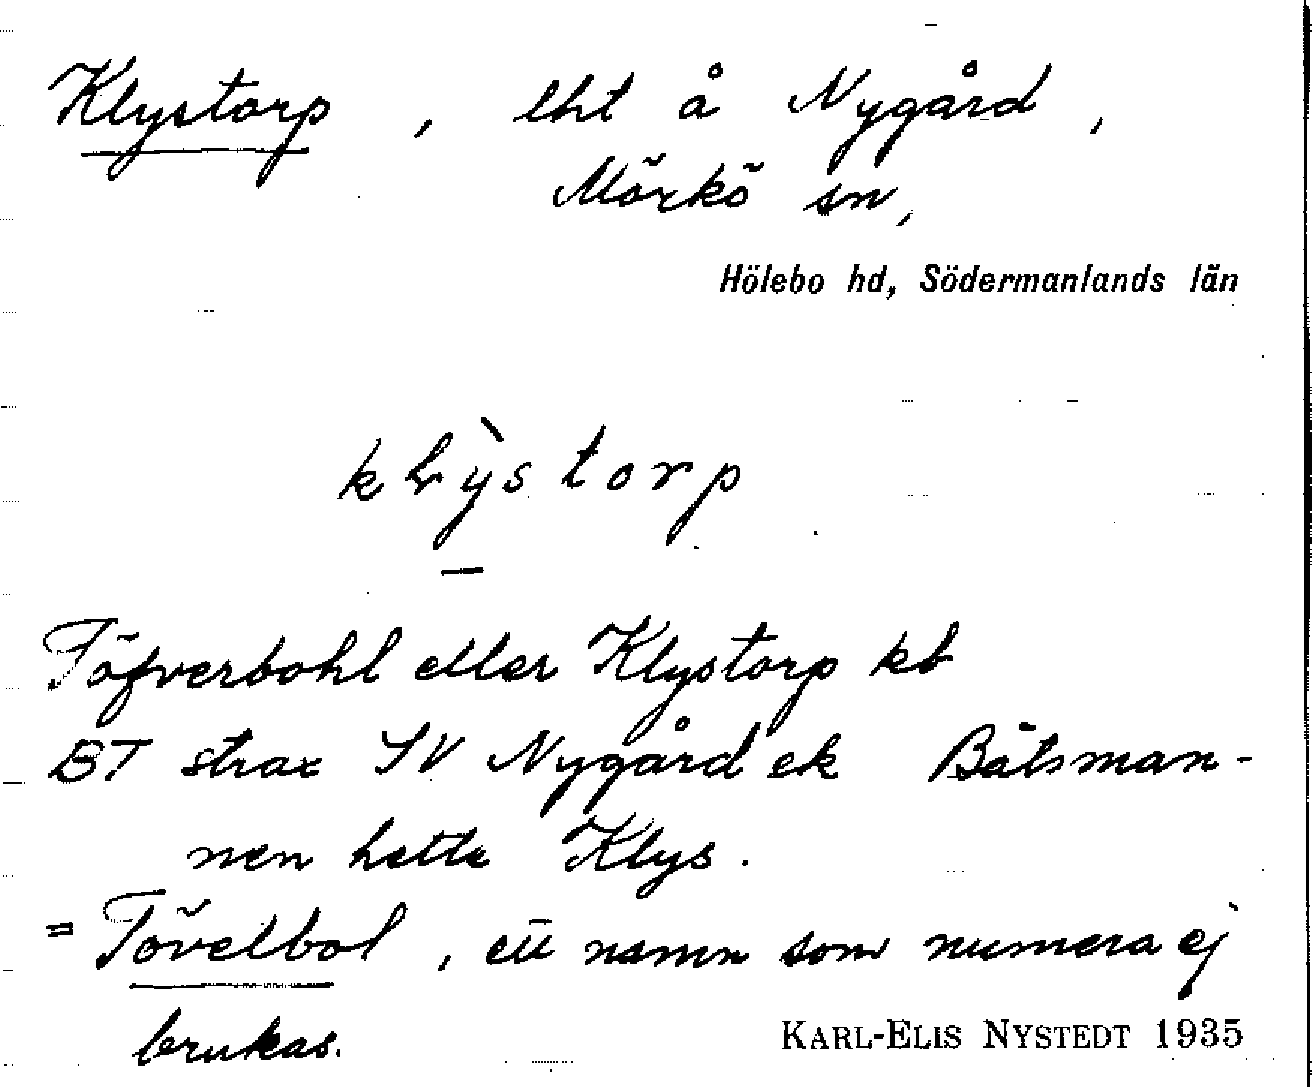 Klystorp, lht å Nygård,
Mörkö sn,
Hölebo hd, Södermanlands län
klỳstorp
Töfverbohl eller Klystorp kb
BT strax SV Nygård ek Båtsman-
nen hette Klys.
= Tövelbol, ett namn som numera ej
brukas.
KARL-ELIS NYSTEDT 1935